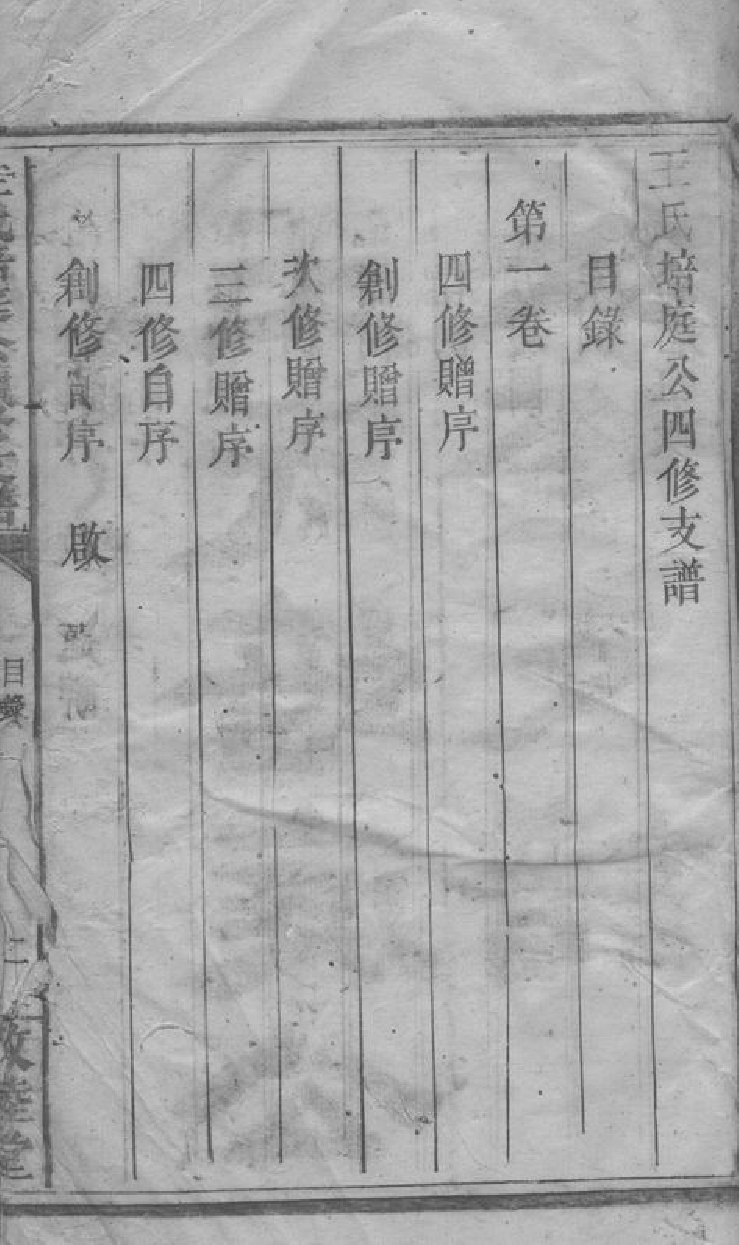 王氏培庭公四修支譜
目錄
第一卷
四修贈序
創修贈序
次修贈序
三修贈序
四修自序
創修自序 啟
目錄
二
堂